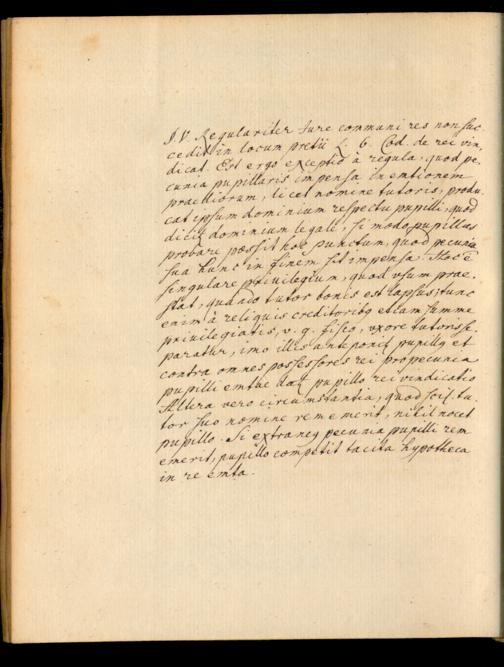 §. V. Regulariter Jure communi res non suc-
cedit in locum pretii L. 6. Cod. de rei vin-
dicat. Est ergo exceptio à regula, quod pe-
cunia pupillaris impensa in emtionem
praediorum, licet nomine tutoris, produ-
cat ipsum dominium respectu pupilli, quod
dicit dominium legale, si modo pupillus
probare possit hoc punctum, quod pecunia
sua hunc in finem sit impensa. Hoc ē
singulare privilegium, quod vsum prae-
stat, quando tutor bonis est lapsus; tunc
enim à reliquis creditoribq etiam summe
privilegiatis, v. g. fisco, vxore tutoris se-
paratur, imo illis anteponit pupillq et
contra omnes possessores rei pro pecunia
pupilli emtae dat pupillo rei vindicatio
Altera vero circumstantia, quod scil. tu-
tor suo nomine rem emerit, nihil nocet
pupillo. Si extraneq pecunia pupilli rem
emerit, pupillo competit tacita hypotheca
in re emta.